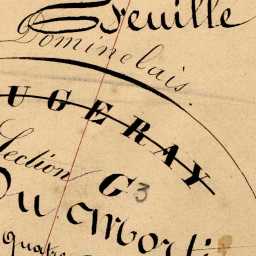 Feuille
Dominelais.
UGERAY
Section G 3
Du Morti
quatr